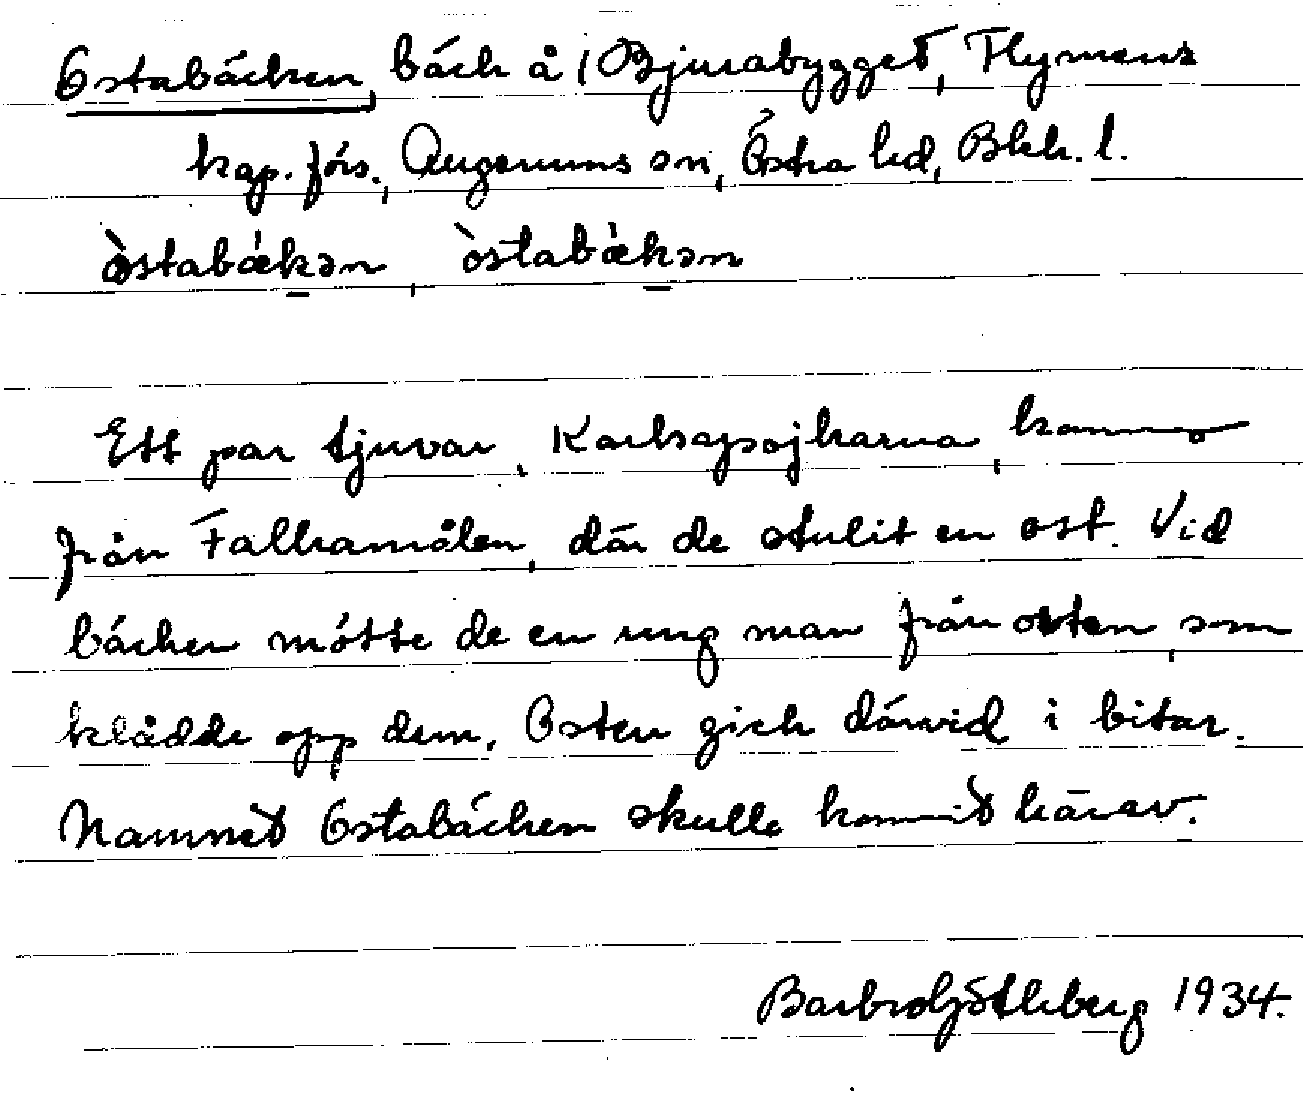 Ostabäcken, bäck å 1 Bjurabygget, Flymens
kap. förs., Augerums sn, Östra hd, Blek. l.
òstabǽkən, òstabǽkən
Ett par tjuvar, Karlsapojkarna, kommo
från Falkamålen, där de stulit en ost. Vid
bäcken mötte de en ung man från orten, som
klådde opp dem. Osten gick därvid i bitar.
Namnet Ostabäcken skulle kommit härav.
1934.